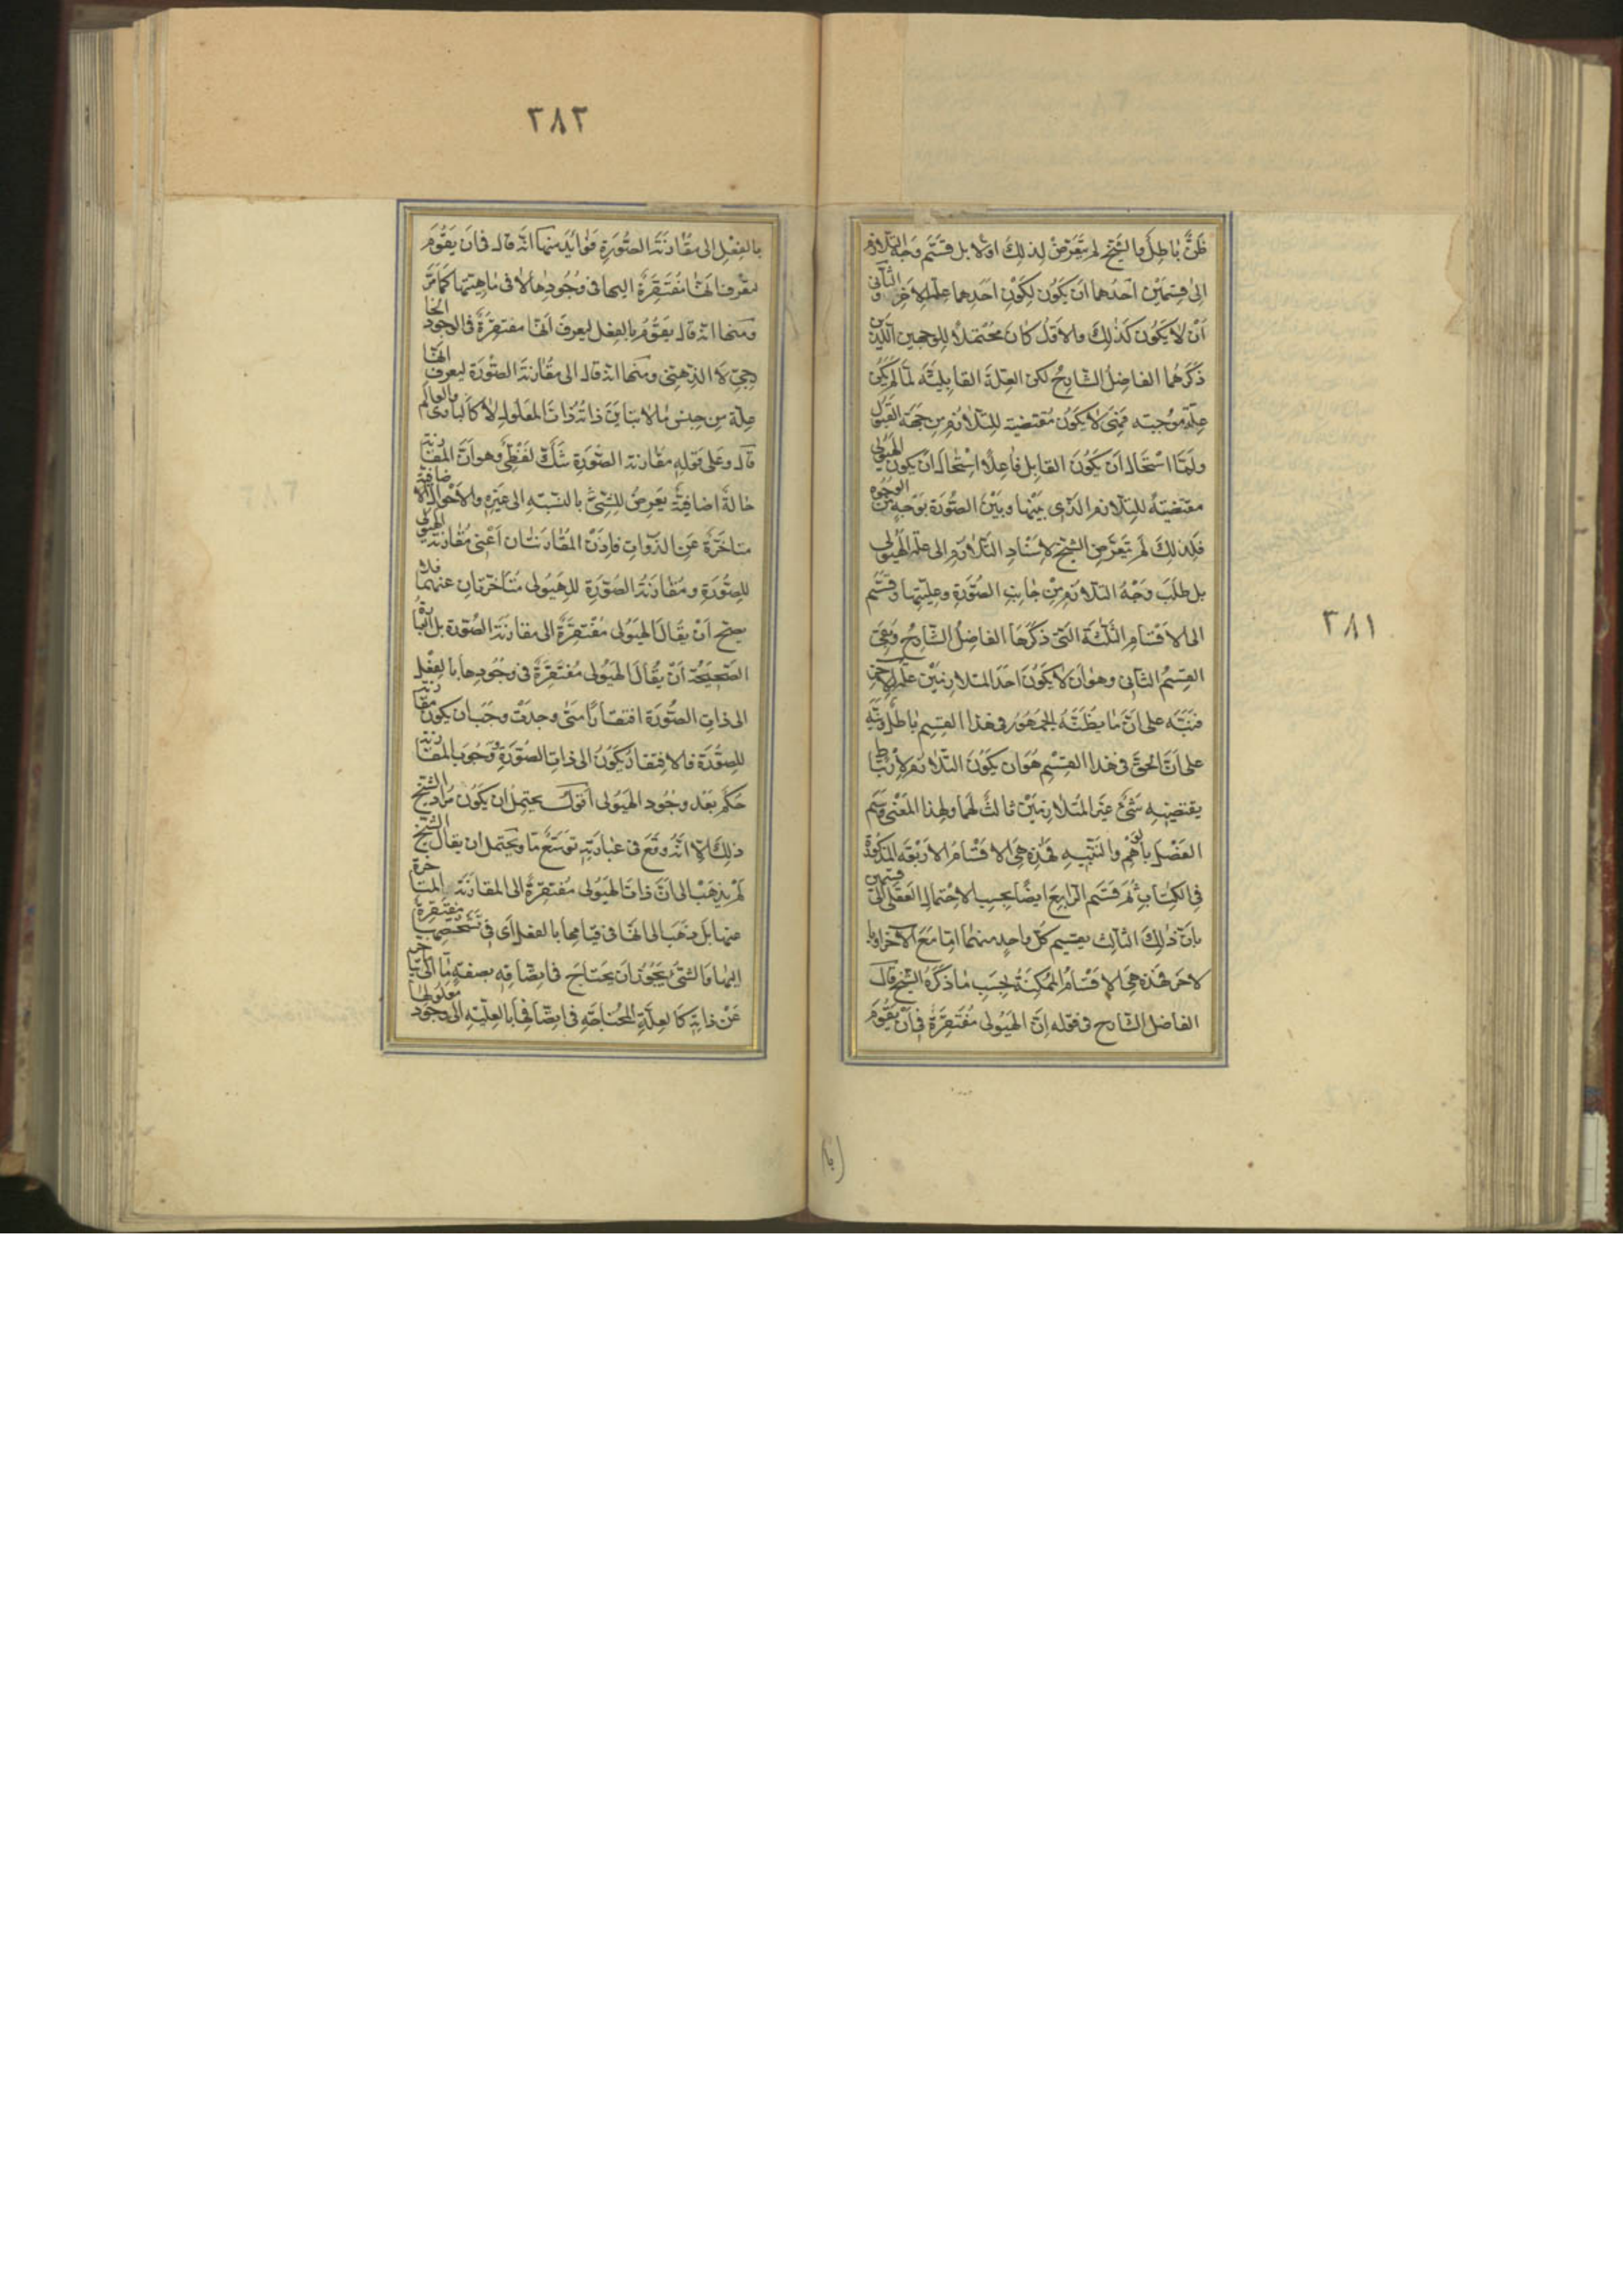 ظن باطل والشيخ لم يتعرض لذلك اولا بل قسم وجه التلازم
الى قسمين احدهما ان يكون لكون احدهما علة للاخر والثانى
ان لا يكون كذلك والاول كان محتملا للوجهين اللذين
ذكرهما الفاضل الشارح لكن العلة القابلية لما لم يكن
علة موجبة فهى لا يكون مقتضية للتلازم من جهة القبول
ولما استحال ان يكون القابل فاعلا استحال ان يكون الهيولى
مقتضية للتلازم الذى بينها وبين الصورة بوجه من الوجوه
فلذلك لم يتعرض الشيخ لاسناد التلازم الى علية الهيولى
بل طلب وجه التلازم من جانب الصورة وعليتها وقسم
الى الاقسام الثلثة التى ذكرها الفاضل الشارح وبقى
القسم الثانى وهو ان لا يكون احد المتلازمين علة للاخر
فنبه على ان ما يظنه الجمهور فى هذا القسم باطل ونبه
على ان الحق فى هذا القسم هو ان يكون التلازم لارتباط
يقتضيه شىء غير المتلازمين ثالث لهما ولهذا المعنى وسم
الفصل بالوهم والتنبيه فهذه هى الاقسام الاربعة المذكورة
فى الكتاب ثم قسم الرابع ايضا بحسب الاحتمال العقلى الى قسمين
بان ذلك الثالث يقيم كل واحد منهما اما مع الاخر او با
لاخر فهذه هى الاقسام الممكنة بحسب ما ذكره الشيخ قال
الفاضل الشارح فى قوله ان الهيولى مفتقرة فى ان يقوم
٣٨١
٣٨٢
بالفعل الى مقارنة الصورة فوائد منها انه قال فى ان يقوم
ليعرف انها مفتقرة اليها فى وجودها لا فى ماهيتها كما مر
ومنها انه قال يقوم بالفعل ليعرف انها مفتقرة فى الوجود الخا
رجى لا الذهنى ومنها انه قال الى مقارنة الصورة ليعرف انها
علة من جنس ما لا يباين ذاته ذات المعلول لا كالبارى والعالم
قال وعلى قوله مقارنة الصورة شك لفظى وهو ان المقارنة
حالة اضافية يعرض للشىء بالنسبة الى غيره والاحوال الاضافية
متاخرة عن الذوات فاذن المقارنتان اعنى مقارنة الهيولى
للصورة ومقارنة الصورة للهيولى متاخرتان عنهما فلا
يصح ان يقال الهيولى مفتقرة الى مقارنة الصورة بل العبارة
الصحيحة ان يقال الهيولى مفتقرة فى وجودها بالفعل
الى ذات الصورة افتقارا متى وجدت وجب ان يكون مقارنة
للصورة فالافتقار يكون الى ذات الصورة ووجوب المقارنة
حكم بعد وجود الهيولى اقول يحتمل ان يكون مراد الشيخ
ذلك الا انه وقع فى عبارته توسع ما ويحتمل ان يقال الشيخ
لم يذهب الى ان ذات الهيولى مفتقرة الى المقارنة المتاخرة
عنها بل ذهب الى انها فى قيامها بالفعل اى فى تشخصها مفتقرة
اليها والشىء يجوز ان يحتاج فى اتصافه بصفة ما الى ما يتاخر
عن ذاته كالعلة المحتاجة فى اتصافها بالعلية الى وجود معلولها